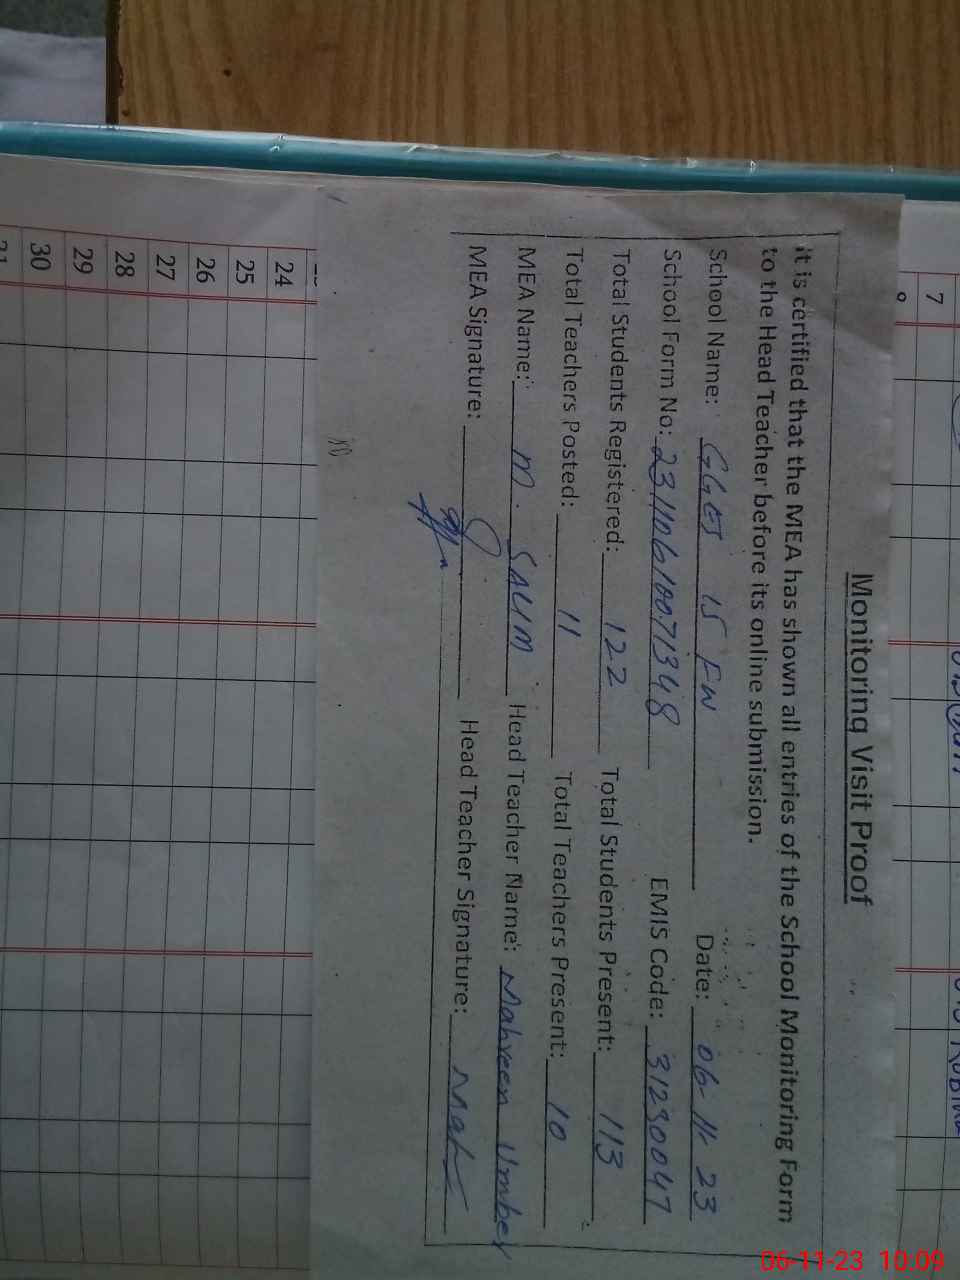 Monitoring Visit Proof
it is certified that the MEA has shown all entries of the School Monitoring Form
to the Head Teacher before its online submission.
School Name: GGES 15 FW Date: 06-11-23
School Form No: 23110610071348 EMIS Code: 31230047
Total Students Registered: 122 Total Students Present: 113
Total Teachers Posted: 11 Total Teachers Present: 10
MEA Name: M. SALIM Head Teacher Name: Mahreen Umber
MEA Signature: Head Teacher Signature:
7
24
25
26
27
28
29
30
06-11-23 10:09